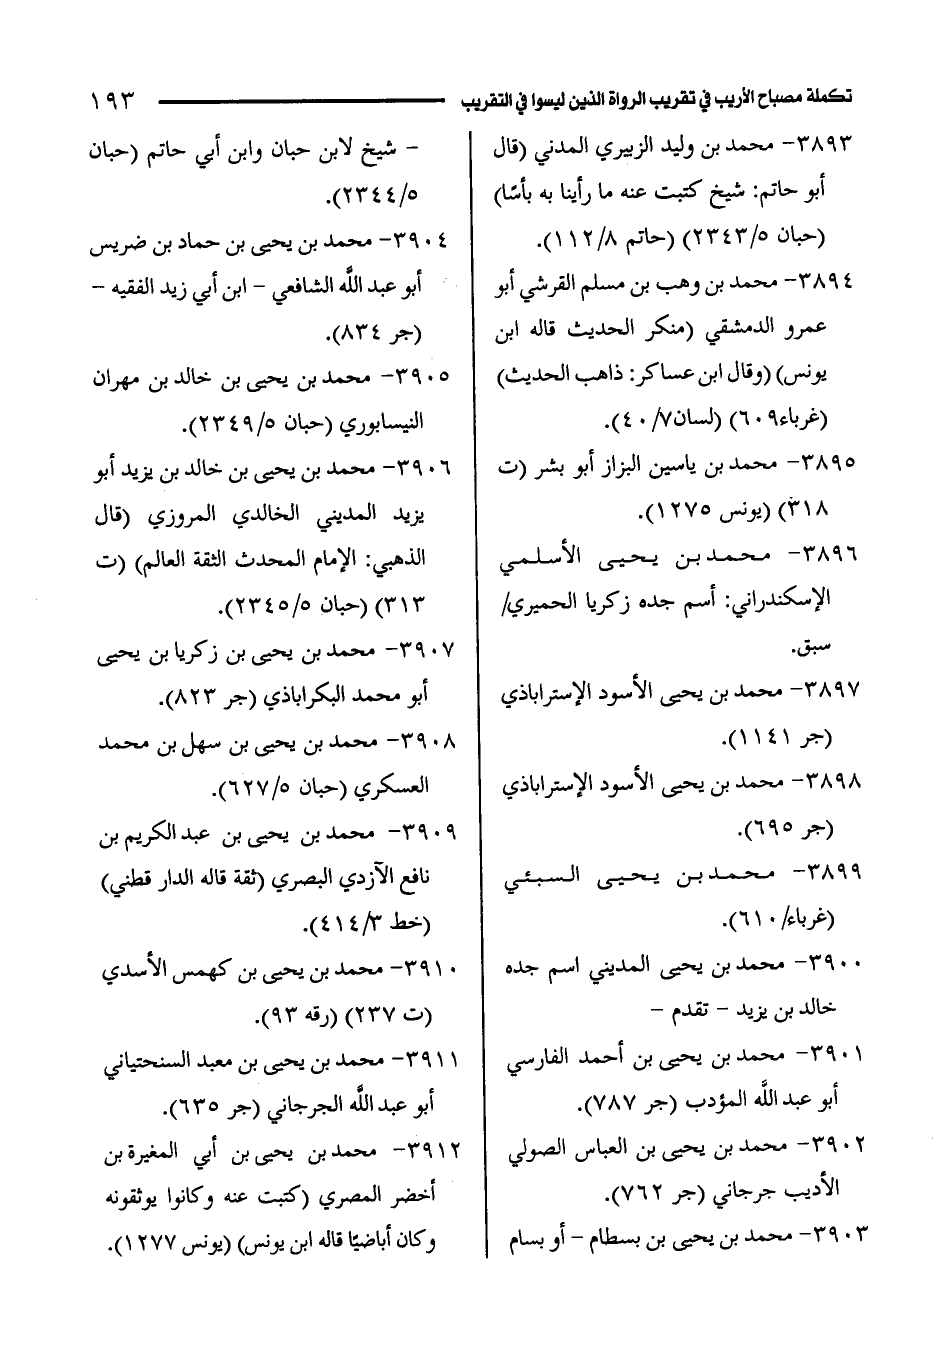 تكملة مصباح الأريب في تقريب الرواة الذين ليسوا في التقريب ١٩٣
٣٨٩٣- محمد بن وليد الزبيري المدني (قال
أبو حاتم: شيخ كتبت عنه ما رأينا به بأسًا)
(حبان ٢٣٤٣/٥) (حاتم ١١٢/٨).
٣٨٩٤- محمد بن وهب بن مسلم القرشي أبو
عمرو الدمشقي (منكر الحديث قاله ابن
يونس) (وقال ابن عساكر: ذاهب الحديث)
(غرباء٦٠٩) (لسان٤٠/٧).
٣٨٩٥- محمد بن ياسين البزاز أبو بشر (ت
٣١٨) (يونس ١٢٧٥).
٣٨٩٦- محمد بن يحيى الأسلمي
الإسكندراني: أسم جده زكريا الحميري/
سبق.
٣٨٩٧- محمد بن يحيى الأسود الإستراباذي
(جر ١١٤١).
٣٨٩٨- محمد بن يحيى الأسود الإستراباذي
(جر ٦٩٥).
٣٨٩٩- محمد بن يحيى السبئي
(غرباء/٦١٠).
٣٩٠٠- محمد بن يحيى المديني اسم جده
خالد بن يزيد - تقدم -
٣٩٠١- محمد بن يحيى بن أحمد الفارسي
أبو عبد اللَّه المؤدب (جر ٧٨٧).
٣٩٠٢- محمد بن يحيى بن العباس الصولي
الأديب جرجاني (جر ٧٦٢).
٣٩٠٣- محمد بن يحيى بن بسطام - أو بسام
- شيخ لابن حبان وابن أبي حاتم (حبان
٢٣٤٤/٥).
٣٩٠٤- محمد بن يحيى بن حماد بن ضريس
أبو عبد اللَّه الشافعي - ابن أبي زيد الفقيه -
(جر ٨٣٤).
٣٩٠٥- محمد بن يحيى بن خالد بن مهران
النيسابوري (حبان ٢٣٤٩/٥).
٣٩٠٦- محمد بن يحيى بن خالد بن يزيد أبو
يزيد المديني الخالدي المروزي (قال
الذهبي: الإمام المحدث الثقة العالم) (ت
٣١٣) (حبان ٢٣٤٥/٥).
٣٩٠٧- محمد بن يحيى بن زكريا بن يحيى
أبو محمد البكراباذي (جر ٨٢٣).
٣٩٠٨- محمد بن يحيى بن سهل بن محمد
العسكري (حبان ٦٢٧/٥).
٣٩٠٩- محمد بن يحيى بن عبد الكريم بن
نافع الآزدي البصري (ثقة قاله الدار قطني)
(خط ٤١٤/٣).
٣٩١٠- محمد بن يحيى بن كهمس الأسدي
(ت ٢٣٧) (رقه ٩٣).
٣٩١١- محمد بن يحيى بن معبد السنحتياني
أبو عبد اللَّه الجرجاني (جر ٦٣٥).
٣٩١٢- محمد بن يحيى بن أبي المغيرة بن
أخضر المصري (كتبت عنه وكانوا يوثقونه
وكان أباضيًا قاله ابن يونس) (يونس ١٢٧٧).